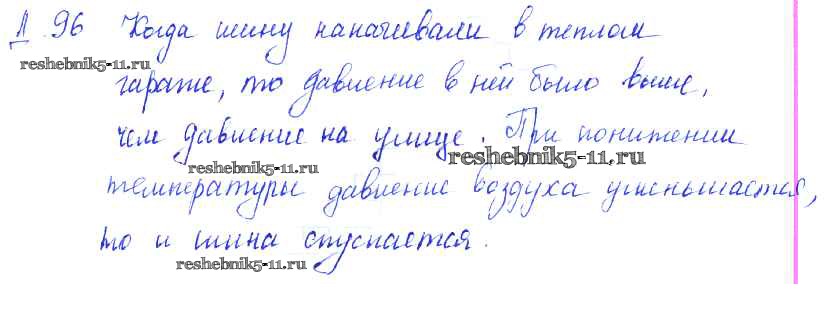 Д. 96 Когда шину накачивали в теплом
reshebnik5-11.ru
гараже, то давление в ней было выше,
чем давление на улице. При понижении
reshebnik5-11.ru
reshebnik5-11.ru
температуры давление воздуха уменьшается,
то и шина спускается.
reshebnik5-11.ru